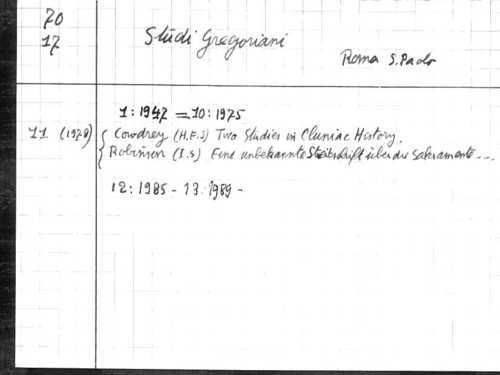 20
17
Studi Gregoriani
Roma S. Paolo
1: 1947 = 10: 1975
11 (1978) { Cowdrey (H.E.J) Two Studies in Cluniac History.
{ Robinson (I.S) Eine unbekannte Streitschrift über die Sakramente ...
12: 1985 - 13: 1989 -